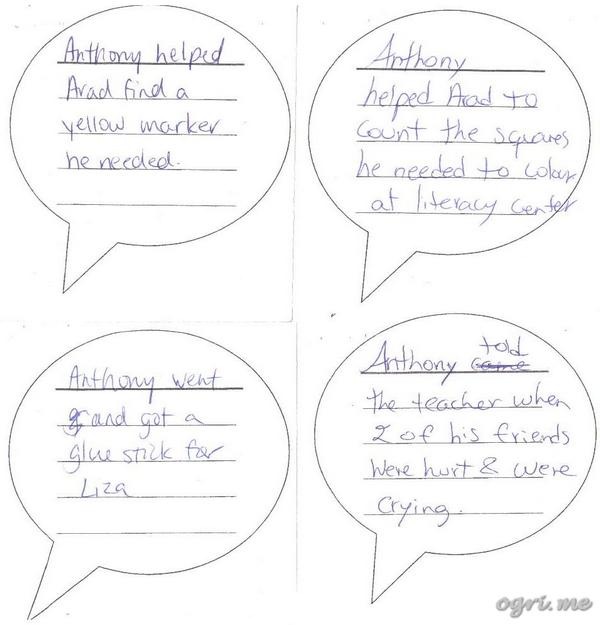 Anthony helped
Arad find a
yellow marker
he needed.
Anthony
helped Arad to
count the squares
he needed to colour
at literacy center
Anthony went
and got a
glue stick for
Liza
told
Anthony came
the teacher when
2 of his friends
were hurt & were
crying.
ogri.me